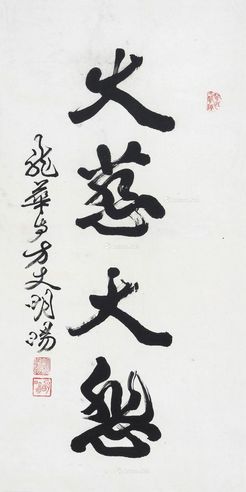 大慈大悲
龍華寺方丈明暘